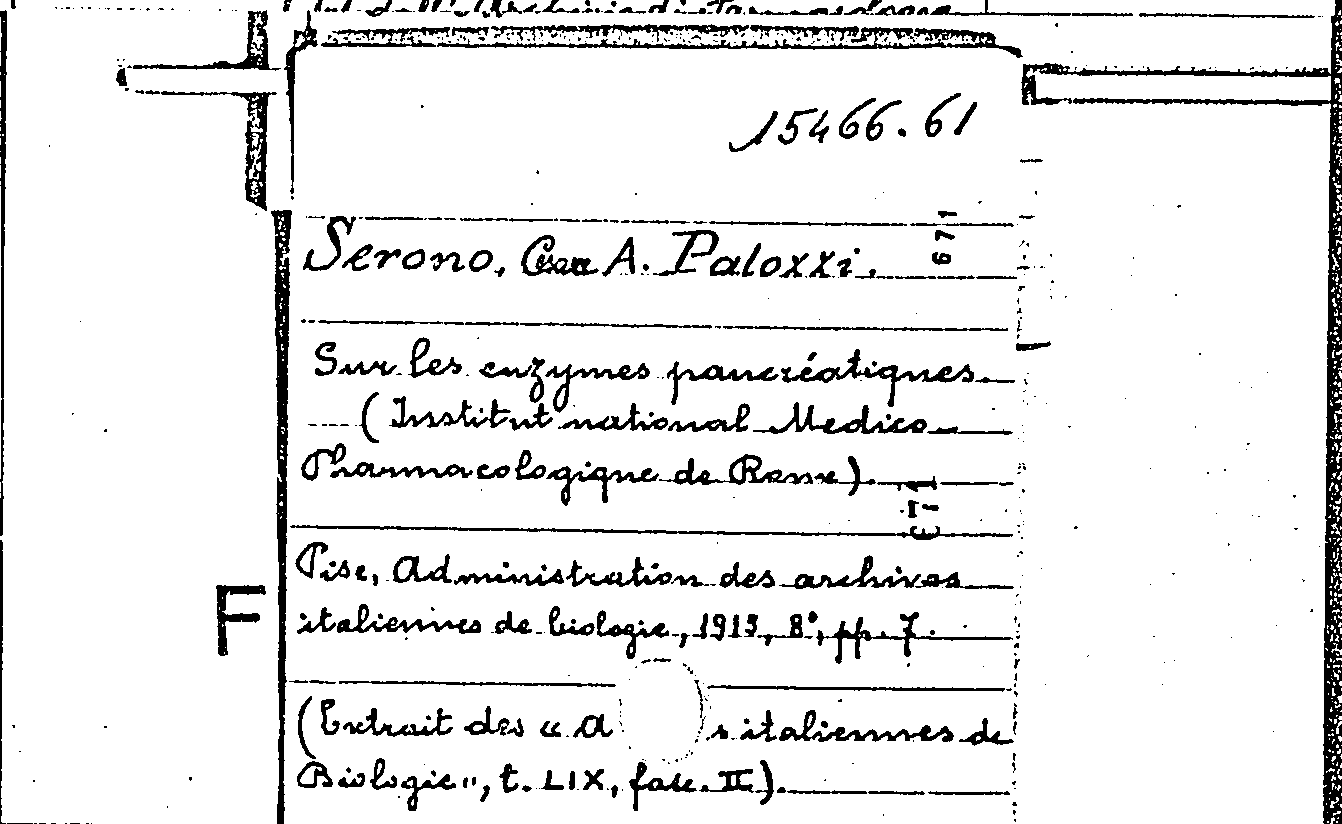 15466.61
671
Serono, Cesare A. Paloxxi.
Sur les enzymes pancréatiques.
(Institut national Medico-
Pharmacologique de Rome).
671
Pise, Administration des archives
F
italiennes de biologie, 1913, 8°, pp. 7.
(Extrait des « A s italiennes de
Biologie », t. LIX, fasc. II).